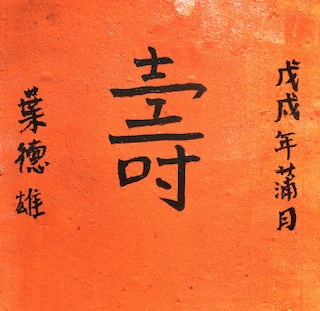 戊戌年蒲月
壽
葉德雄